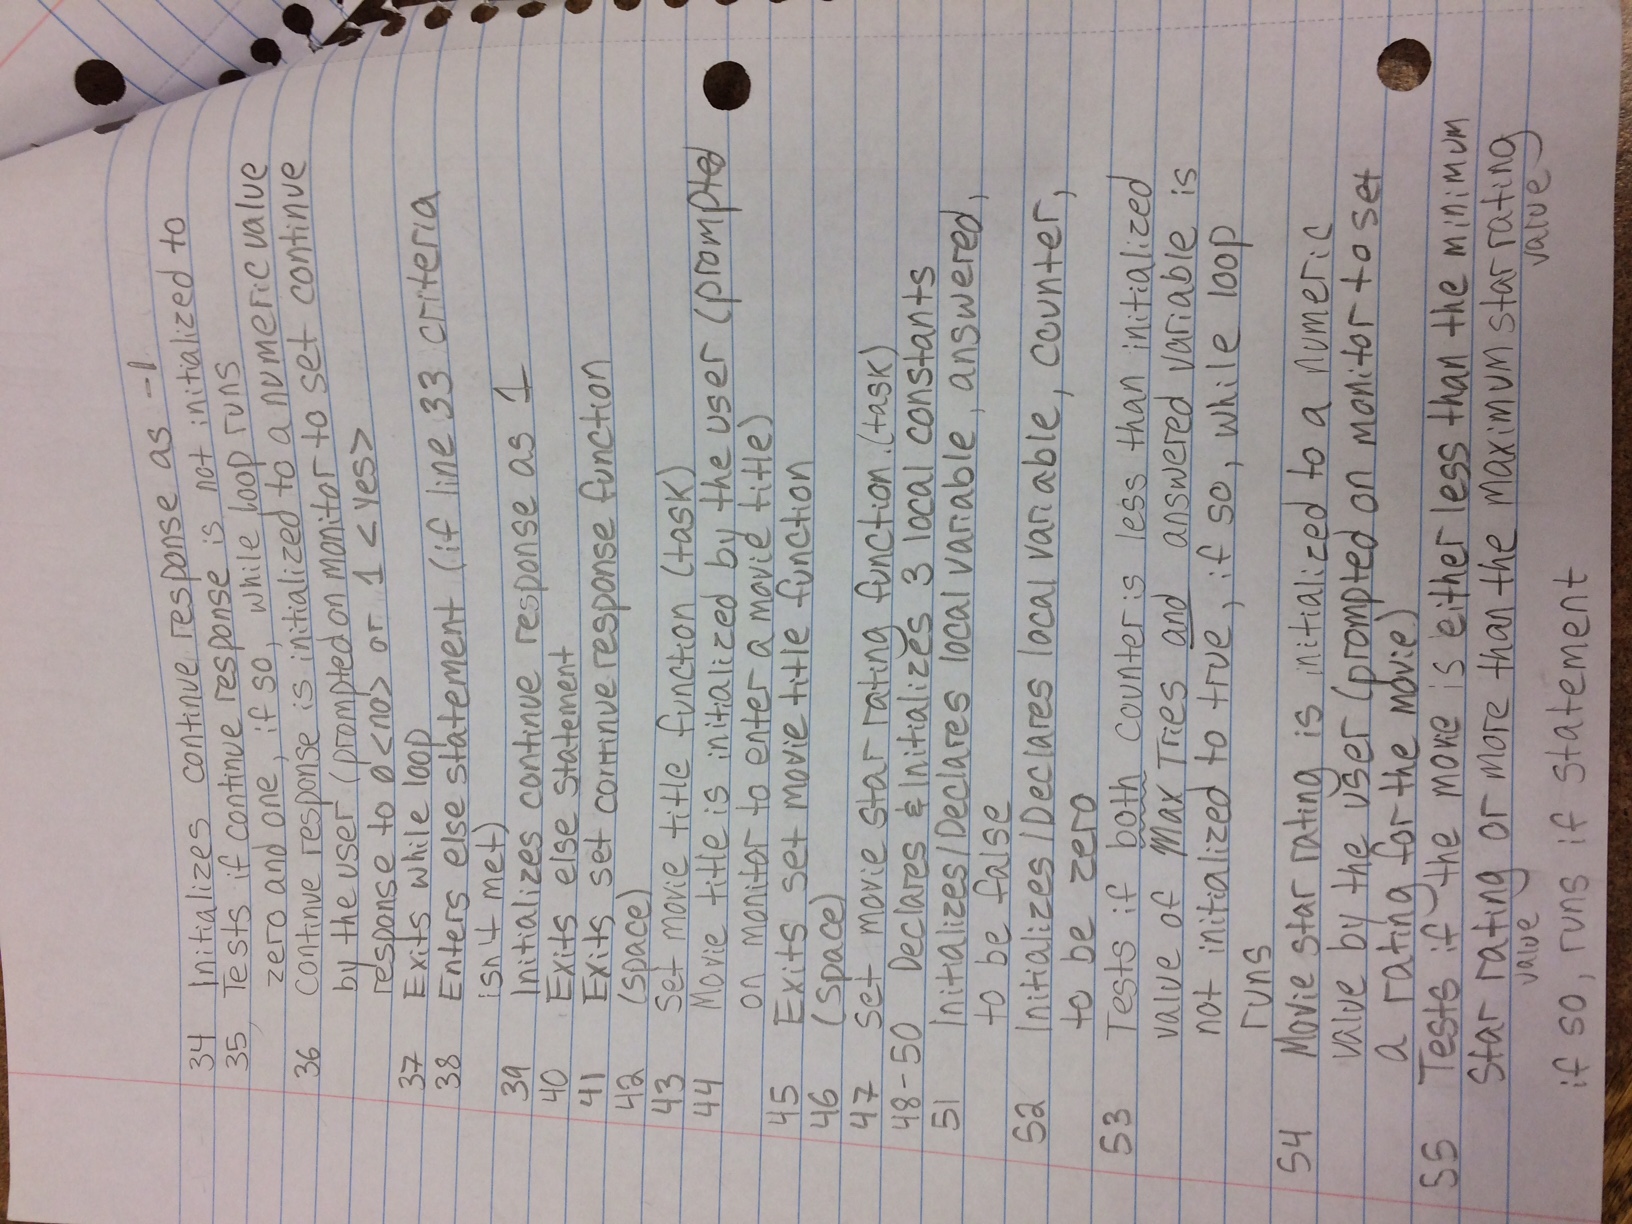 34 Initializes continue response as -1
35 Tests if continue response is not initialized to
zero and one, if so, while loop runs
36 continue response is initialized to a numeric value
by the user (prompted on monitor to set continue
response to 0 <no> or 1 <yes>
37 Exits while loop
38 Enters else statement (if line 33 criteria
isn't met)
39 Initializes continue response as 1
40 Exits else statement
41 Exits set continue response function
42 (space)
43 Set movie title function (task)
44 Movie title is initialized by the user (prompted
on monitor to enter a movie title)
45 Exits set movie title function
46 (space)
47 Set movie star rating function (task)
48-50 Declares & Initializes 3 local constants
51 Initializes/Declares local variable, answered,
to be false
52 Initializes/Declares local variable, counter,
to be zero
53 Tests if both counter is less than initialized
value of Max Tries and answered variable is
not initialized to true, if so, while loop
runs
54 Movie star rating is initialized to a numeric
value by the user (prompted on monitor to set
a rating for the movie)
55 Tests if the movie is either less than the minimum
star rating value or more than the maximum star rating value
if so, runs if statement